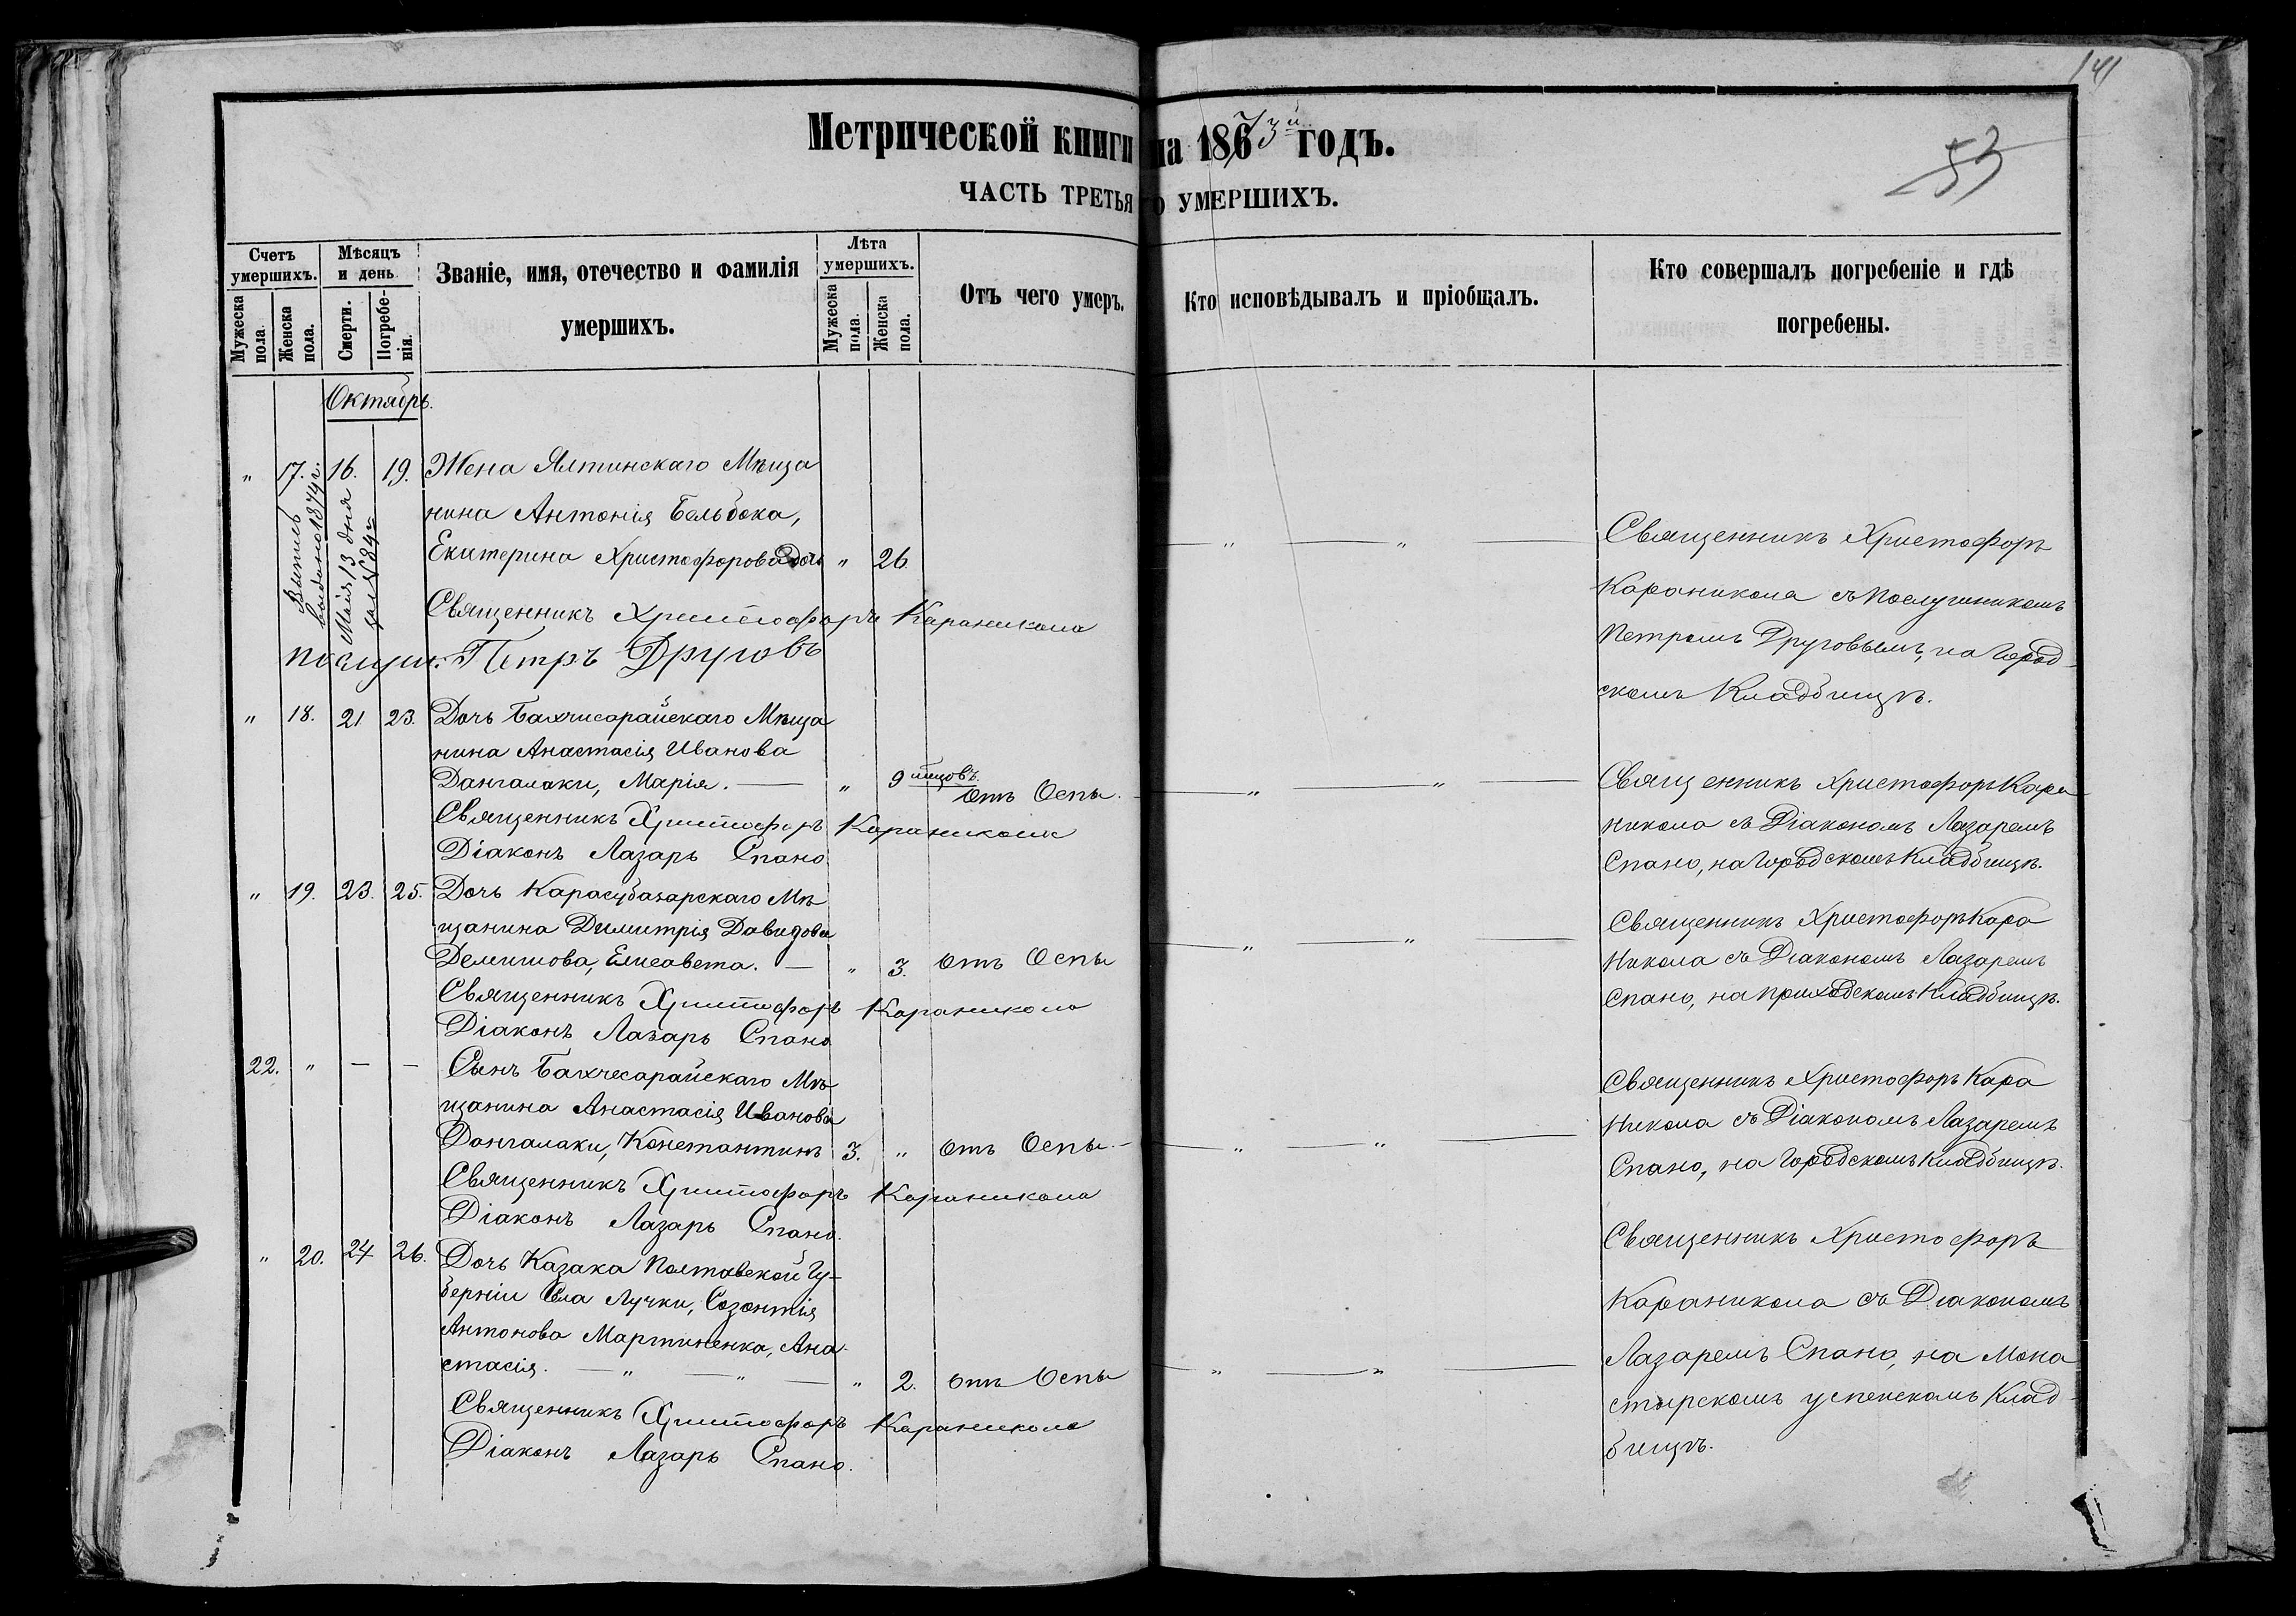 141
53
Метрической книги на 1873й годъ.
ЧАСТЬ ТРЕТЬЯ О УМЕРШИХЪ.
Счетъ умершихъ.
Мужеска пола.
Женска пола.
Мѣсяцъ и день
Смерти.
Погребе-нія.
Званіе, имя, отечество и фамилія
умершихъ.
Лѣта умершихъ.
Мужеска пола.
Женска пола.
Отъ чего умеръ.
Кто исповѣдывалъ и пріобщалъ.
Кто совершалъ погребеніе и гдѣ
погребены.
Октябрь.
" 17. 16. 19. Жена Ялтинскаго Мѣща
нина Антонія Бельбока,
Екатерина Христофорова дочь " 26.
Выпись
выдано 1874 г.
Мая 13 дня
за № 84м
Священникъ Христофоръ Караникола
послуш. Петръ Друговъ
Священникъ Христофоръ
Караникола съ послушникомъ
Петромъ Друговымъ, на Город-
скомъ Кладбищѣ.
" 18. 21 23. Дочь Бахчисарайскаго Мѣща
нина Анастасія Иванова
Дангалаки, Марія. — " 9 мѣсцовъ. отъ Оспы.
Священникъ Христофоръ Караникола
Діаконъ Лазарь Спано
Священникъ Христофоръ Кара
никола съ Діакономъ Лазаремъ
Спано, на Городскомъ Кладбищѣ.
" 19. 23. 25. Дочь Карасубазарскаго Мѣ
щанина Димитрія Давидова
Демишова, Елисавета. — " 3. отъ Оспы
Священникъ Христофоръ Караникола
Діаконъ Лазарь Спано
Священникъ Христофоръ Кара
никола съ Діакономъ Лазаремъ
Спано, на приходскомъ Кладбищѣ.
22. " — — Сынъ Бахчесарайскаго Мѣ
щанина Анастасія Иванова
Дангалаки, Константинъ 3. " отъ Оспы.
Священникъ Христофоръ Караникола
Діаконъ Лазарь Спано.
Священникъ Христофоръ Кара
никола съ Діакономъ Лазаремъ
Спано, на Городскомъ Кладбищѣ.
" 20. 24 26. Дочь Казака Полтавской Гу-
берніи Села Лучки, Созонтія
Антонова Мартиненка, Ана-
стасія. — " — " — " 2. отъ Оспы
Священникъ Христофоръ Караникола
Діаконъ Лазарь Спано.
Священникъ Христофоръ
Караникола съ Діакономъ
Лазаремъ Спано, на Мона
стырскомъ успенскомъ Клад-
бищѣ.